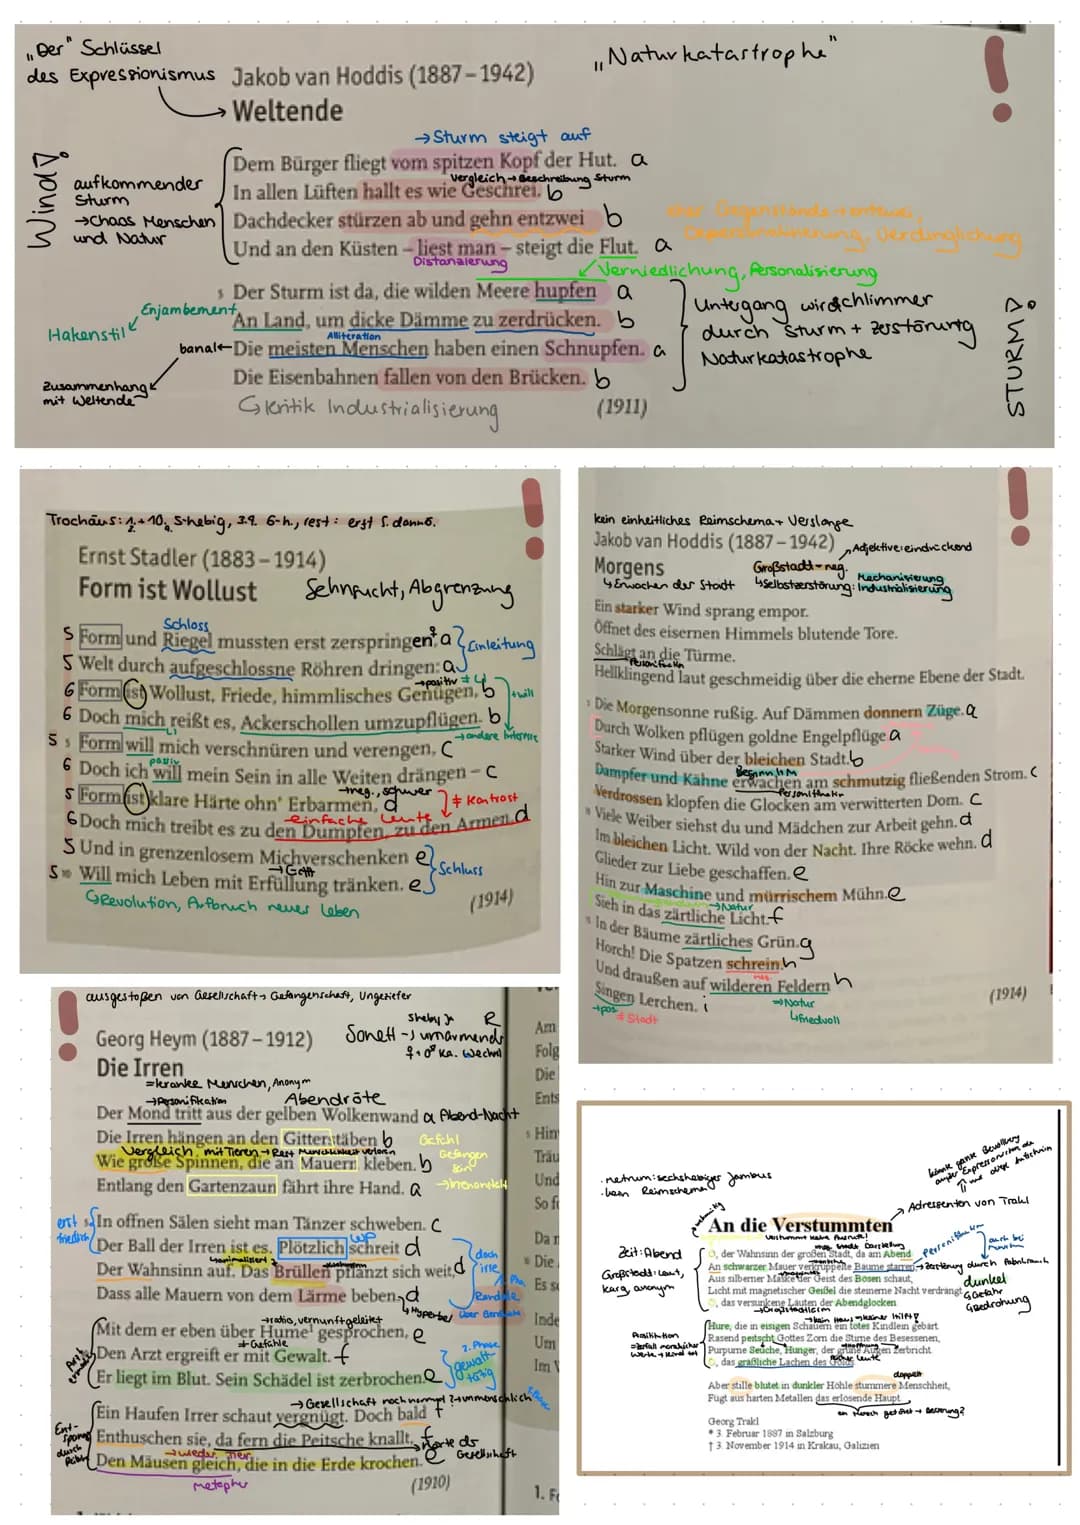 „Der" Schlüssel
des Expressionismus
„Naturkatastrophe"
!
Jakob van Hoddis (1887–1942)
Weltende
→ Sturm steigt auf
Wind
aufkommender
Sturm
→ Chaos Menschen
und Natur
Dem Bürger fliegt vom spitzen Kopf der Hut. a
Vergleich → Beschreibung Sturm
In allen Lüften hallt es wie Geschrei. b
Dachdecker stürzen ab und gehn entzwei b
Und an den Küsten – liest man – steigt die Flut. a
Distanzierung
Verniedlichung, Personalisierung
5 Der Sturm ist da, die wilden Meere hupfen a
Enjambement
Hakenstil
An Land, um dicke Dämme zu zerdrücken. b
Alliteration
banal ← Die meisten Menschen haben einen Schnupfen. a
Die Eisenbahnen fallen von den Brücken. b
Zusammenhang
mit Weltende
Kritik Industrialisierung
(1911)
Untergang wird schlimmer
durch Sturm + Zerstörung
Naturkatastrophe
STURM
!
Ernst Stadler (1883–1914)
Form ist Wollust
Sehnsucht, Abgrenzung
Schloss
5 Form und Riegel mussten erst zerspringen, a
Einleitung
5 Welt durch aufgeschlossne Röhren dringen: a
→ positiv
6 Form ist Wollust, Friede, himmlisches Genügen, b
6 Doch mich reißt es, Ackerschollen umzupflügen. b
5 5 Form will mich verschnüren und verengen, c
passiv
6 Doch ich will mein Sein in alle Weiten drängen – c
→ neg., schwer
5 Form ist klare Härte ohn' Erbarmen, d
≠ Kontrast
einfache Leute
6 Doch mich treibt es zu den Dumpfen, zu den Armen, d
5 Und in grenzenlosem Michverschenken e
→ Gott
Schluss
5 10 Will mich Leben mit Erfüllung tränken. e
Revolution, Aufbruch neues Leben
(1914)
!
kein einheitliches Reimschema + Verslänge
Jakob van Hoddis (1887–1942)
Morgens
Großstadt = neg.
↳ Erwachen der Stadt
↳ Selbstzerstörung:
Mechanisierung
Industrialisierung
Ein starker Wind sprang empor.
Öffnet des eisernen Himmels blutende Tore.
Schlägt an die Türme.
Hellklingend laut geschmeidig über die eherne Ebene der Stadt.
5 Die Morgensonne rußig. Auf Dämmen donnern Züge. a
Durch Wolken pflügen goldne Engelpflüge a
Starker Wind über der bleichen Stadt. b
Dampfer und Kähne erwachen am schmutzig fließenden Strom. c
Verdrossen klopfen die Glocken am verwitterten Dom. c
Viele Weiber siehst du und Mädchen zur Arbeit gehn. d
Im bleichen Licht. Wild von der Nacht. Ihre Röcke wehn. d
Glieder zur Liebe geschaffen. e
Hin zur Maschine und mürrischem Mühn. e
→ Natur
Sieh in das zärtliche Licht. f
In der Bäume zärtliches Grün. g
Horch! Die Spatzen schrein. h
Und draußen auf wilderen Feldern h
Singen Lerchen. i
→ pos.
≠ Stadt
→ Natur
↳ friedvoll
(1914)
!
ausgestoßen von Gesellschaft → Gefangenschaft, Ungeziefer
Georg Heym (1887–1912)
Sonett
Die Irren
= kranke Menschen, Anonym
→ Personifikation
Abendröte
Der Mond tritt aus der gelben Wolkenwand a Abend-Nacht
Die Irren hängen an den Gitterstäben b
Gefühl
Vergleich mit Tieren
Gefangen
sein
Wie große Spinnen, die an Mauern kleben. b
Entlang den Gartenzaun fährt ihre Hand. a
erst
friedlich
5 In offnen Sälen sieht man Tänzer schweben. c
WP
Der Ball der Irren ist es. Plötzlich schreit d
doch
irre
Der Wahnsinn auf. Das Brüllen pflanzt sich weit, d
Dass alle Mauern von dem Lärme beben. d
↳ Hyperbel
→ ratio, vernunftgeleitet
Mit dem er eben über Hume gesprochen, e
≠ Gefühle
Den Arzt ergreift er mit Gewalt. f
2. Phase
gewalt-
tätig
Er liegt im Blut. Sein Schädel ist zerbrochen. e
Ein Haufen Irrer schaut vergnügt. Doch bald f
Enthuschen sie, da fern die Peitsche knallt, f
→ wieder Tier
Den Mäusen gleich, die in die Erde krochen. e
Metapher
(1910)
Am
Folg
Die
Ents
5 Hin
Träu
Und
So f
Da r
Die
Es se
Inde
Um
Im V
1. Fo
. metrum: sechshebiger Jambus
. kein Reimschema
→ Adressenten von Trakl
An die Verstummten
Zeit: Abend
O, der Wahnsinn der großen Stadt, da am Abend
An schwarzer Mauer verkrüppelte Bäume starren,
Großstadt: laut,
karg, anonym
Aus silberner Maske der Geist des Bösen schaut,
dunkel
Licht mit magnetischer Geißel die steinerne Nacht verdrängt.
↳ Gefahr
O, das versunkene Läuten der Abendglocken.
↳ Bedrohung
Hure, die in eisigen Schauern ein totes Kindlein gebärt.
Rasend peitscht Gottes Zorn die Stirne des Besessenen,
Purpurne Seuche, Hunger, der grüne Augen zerbricht.
O, das gräßliche Lachen des Golds.
doppelt
Aber stille blutet in dunkler Höhle stummere Menschheit,
Fügt aus harten Metallen das erlösende Haupt.
Georg Trakl
* 3. Februar 1887 in Salzburg
† 3. November 1914 in Krakau, Galizien